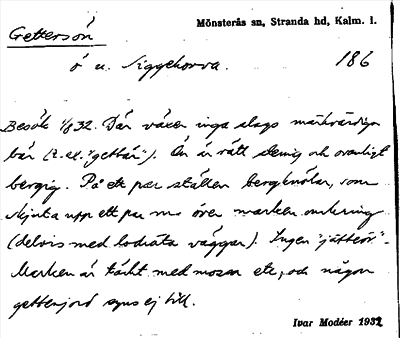 Gettersön
Mönsterås sn, Stranda hd, Kalm. l.
ö u. Siggehorva.
186
Besök 1/8 32. Där växer inga slags märkvärdiga
bär (t. ex. "getbär"). Ön är rätt stenig och ovanligt
bergig. På ett par ställen bergknölar, som
skjuta upp ett par m över marken omkring
(delvis med lodräta väggar). Ingen "jätteö".
Marken är täckt med mossa etc, och någon
getterjord syns ej till.
Ivar Modéer 1932